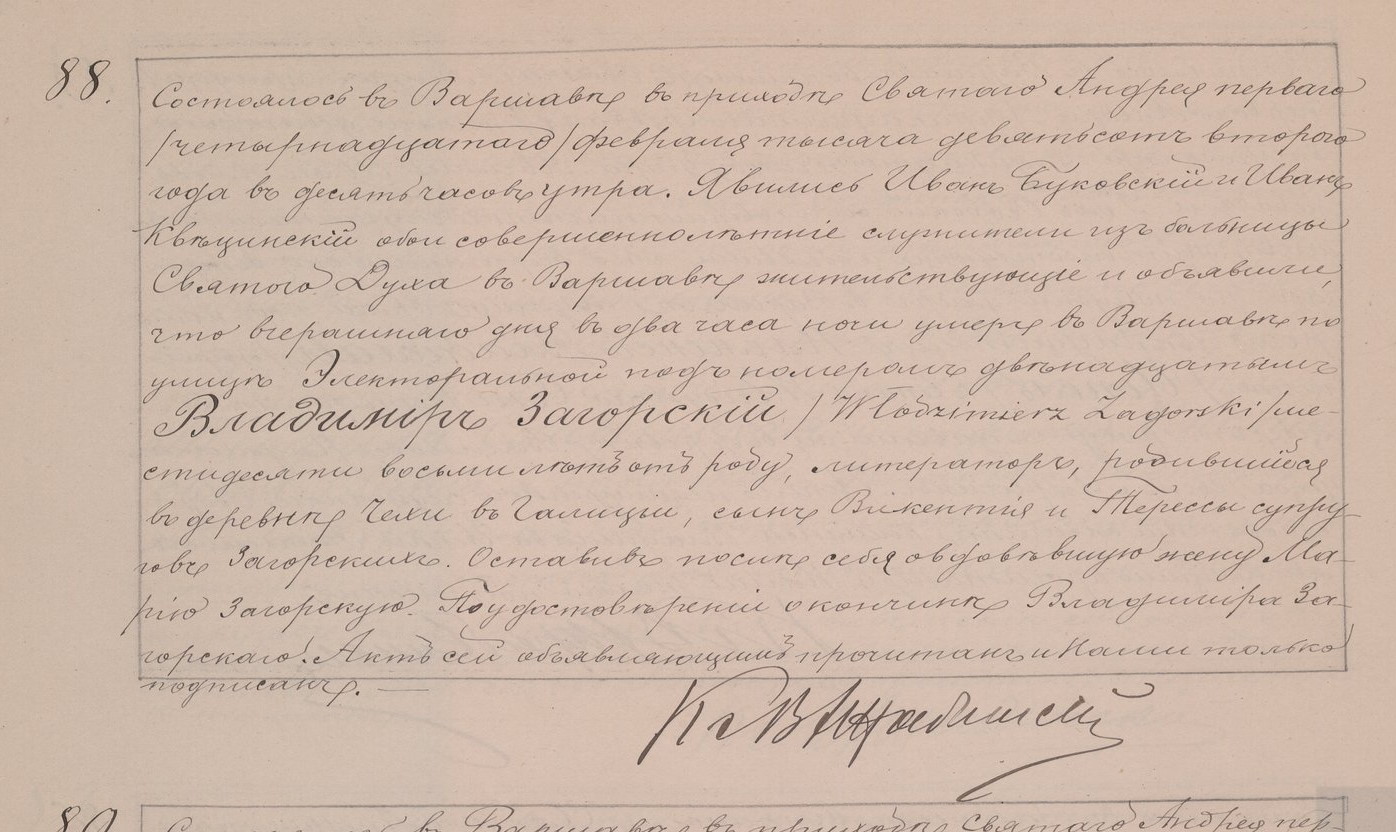 88.
Состоялось въ Варшавѣ въ приходѣ Святаго Андрея перваго
/четырнадцатаго/ февраля тысяча девятьсотъ второго
года въ десять часовъ утра. Явились Иванъ Буковскій и Иванъ
Квѣцинскій обои совершеннолѣтніе служители изъ больницы
Святого Духа въ Варшавѣ жительствующіе и объявили,
что вчерашняго дня въ два часа ночи умеръ въ Варшавѣ по
улицѣ Электоральной подъ номеромъ двѣнадцатымъ
Владимiръ Загорскій /Włodzimierz Zagorski/ ше-
стидесяти восьми лѣтъ отъ роду, литераторъ, родившійся
въ деревнѣ Чехи въ Галиціи, сынъ Викентія и Терессы супру-
говъ Загорскихъ. Оставивъ послѣ себя овдовѣвшую жену Ма-
рію Загорскую. По удостовѣреніи о кончинѣ Владиміра За-
горскаго. Актъ сей объявляющимъ прочитанъ и Нами только
подписанъ. —
89
въ Варшавѣ въ приходѣ Святаго Андрея пер-